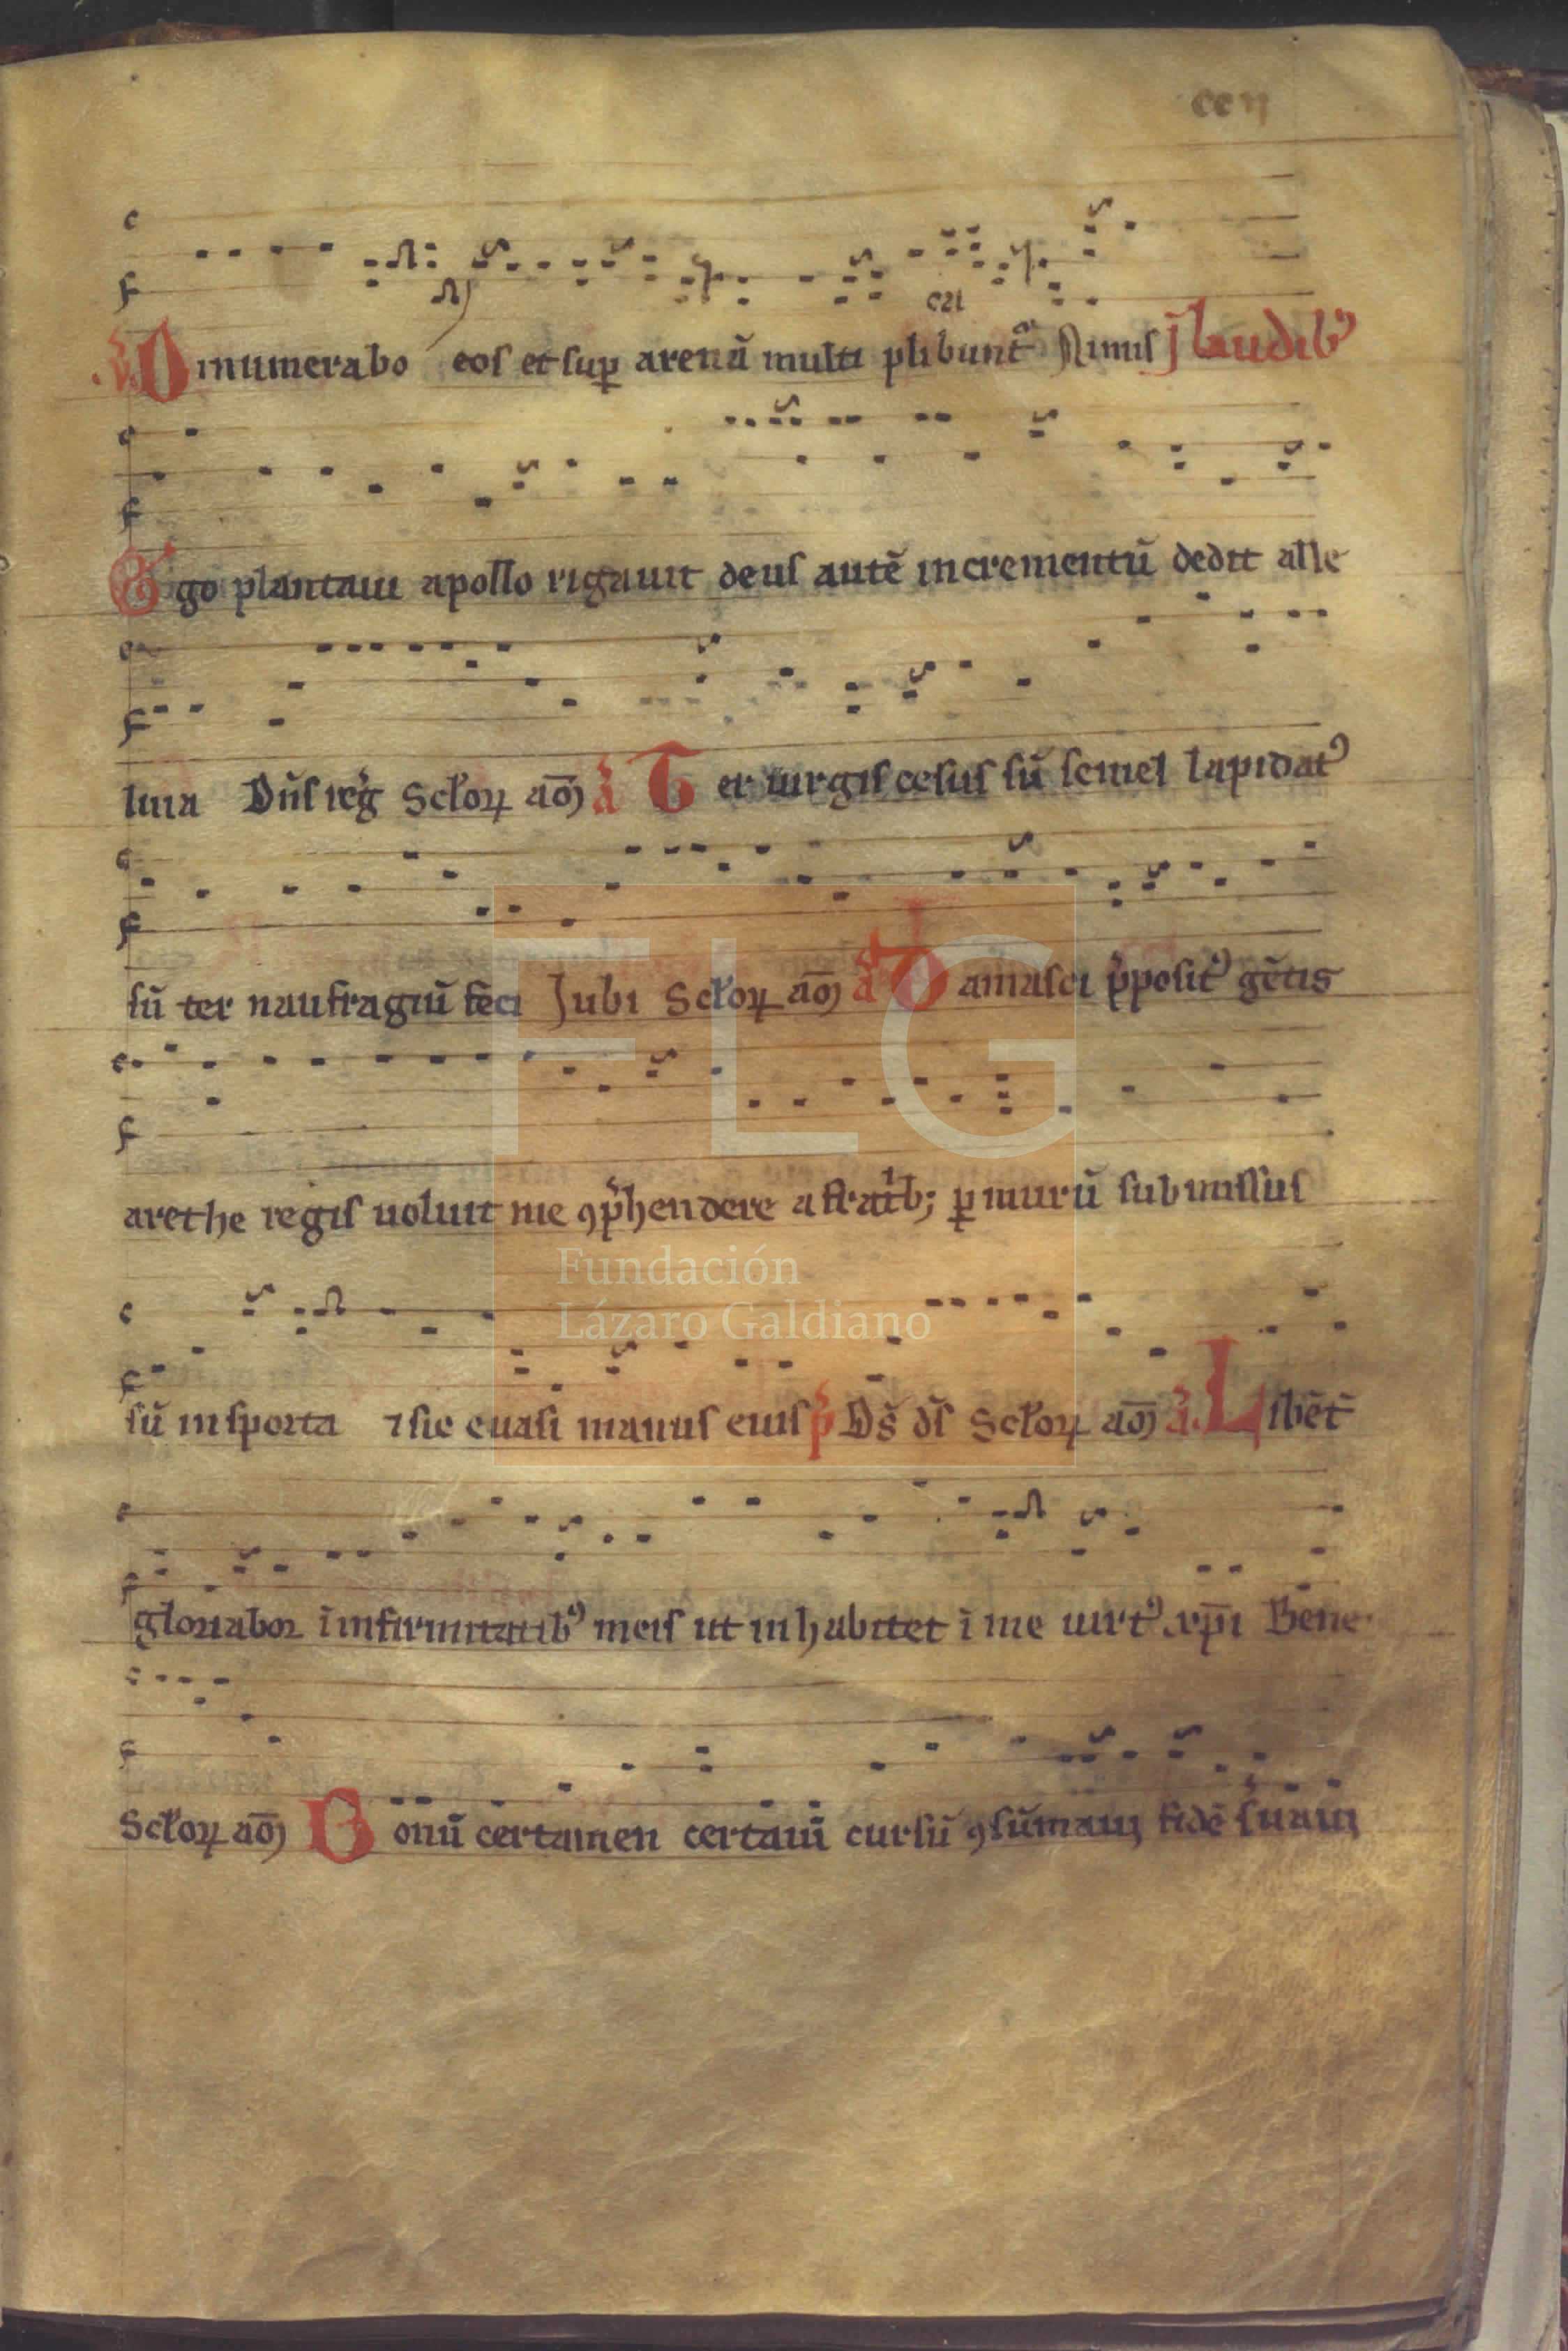 ccij
V̉ Dinumerabo eos et sup̱ arenū multi plibunt᷑ Nimis J̄ Laudib᾽
Ego plantaui apollo rigauit deus autē incrementū dedit alle
luia Dn̄s reg̉ Scl̄oꝝ aō) a᷑ Ter uirgis cesus sū semel lapidat᾽
sū ter naufragiū feci Jubi Scl̄oꝝ aō) a᷑ Damasci p̉posit᾽ gētis
arethe regis uoluit me ꝯp̉hendere a fratͥb; ꝑ murū submissus
sū in sporta ⁊ sic euasi manus eius p̉ Ds̄ ds̄ Scl̄oꝝ aō) a᷑ Libēt᷑
gloriabor ī infirmitatib᾽ meis ut inhabitet ī me uirt᾽ xp̄i Bene
Scl̄oꝝ aō) Bonū certamen certaui cursū ꝯsūmaui fidē suaui
FLG
Fundación
Lázaro Galdiano